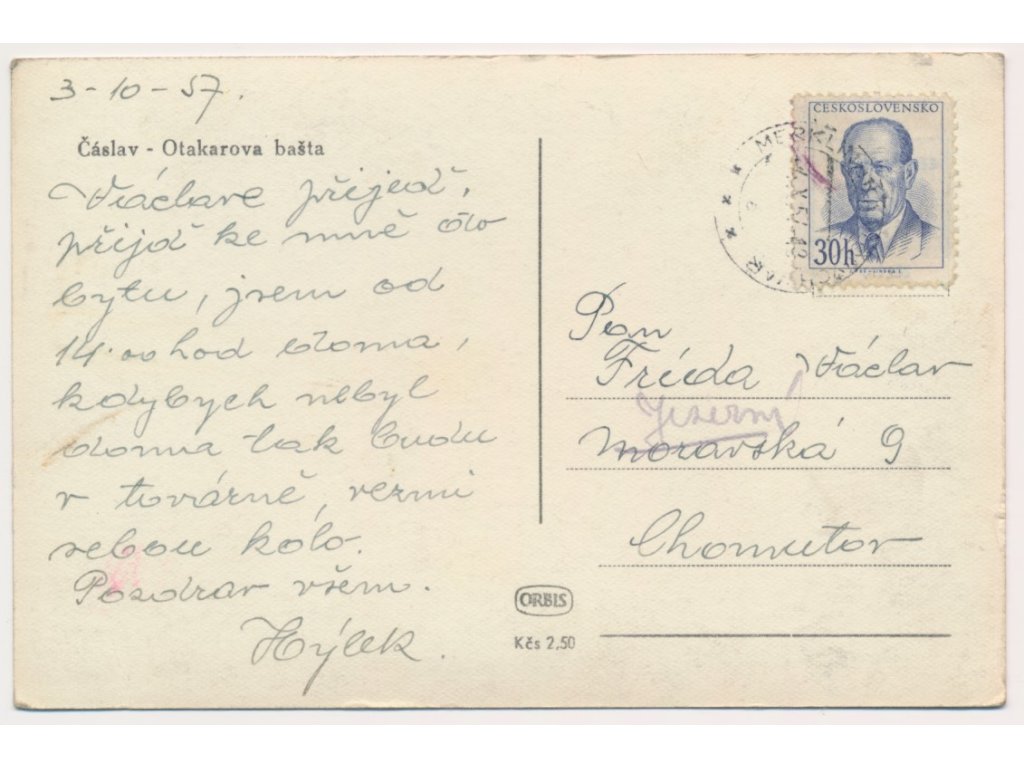 3-10-57.
Čáslav - Otakarova bašta
Václave přijeď,
přijď ke mně do
bytu, jsem od
14.00 hod doma,
kdybych nebyl
doma tak budu
v továrně, vezmi
sebou kolo.
Pozdrav všem.
Hýlek.
ČESKOSLOVENSKO
30h
Pan
Frída Václav
Jezerní
Moravská 9
Chomutov
ORBIS
Kčs 2,50